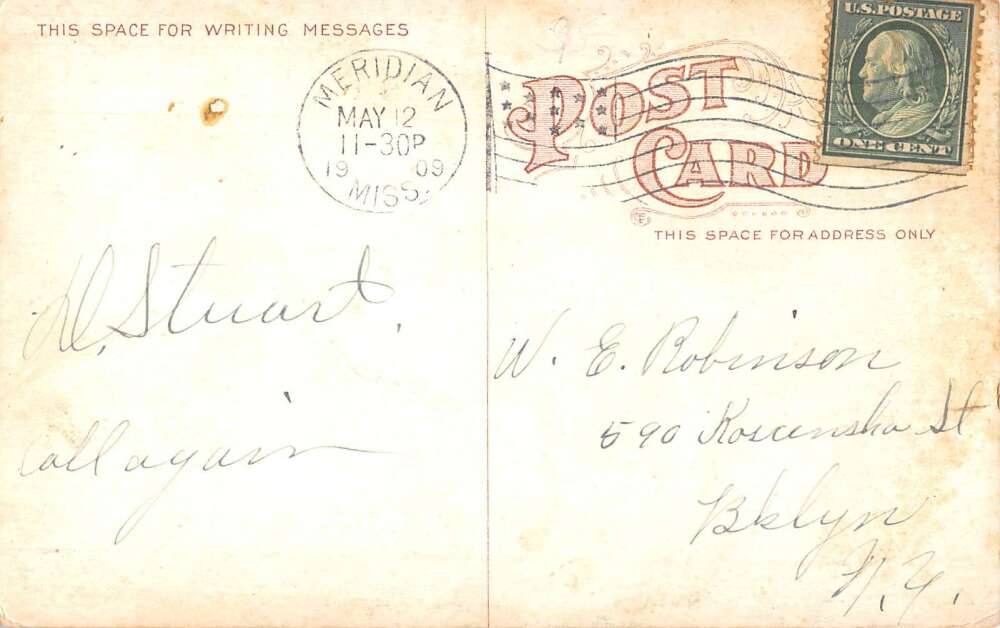 THIS SPACE FOR WRITING MESSAGES
MERIDIAN
MAY 12
11-30P
19 09
MISS.
U.S. POSTAGE
ONE CENT
POST
CARD
THIS SPACE FOR ADDRESS ONLY
D. Stuart.
Call again
W. E. Robinson
590 Kosciusko St
Bklyn
N.Y.